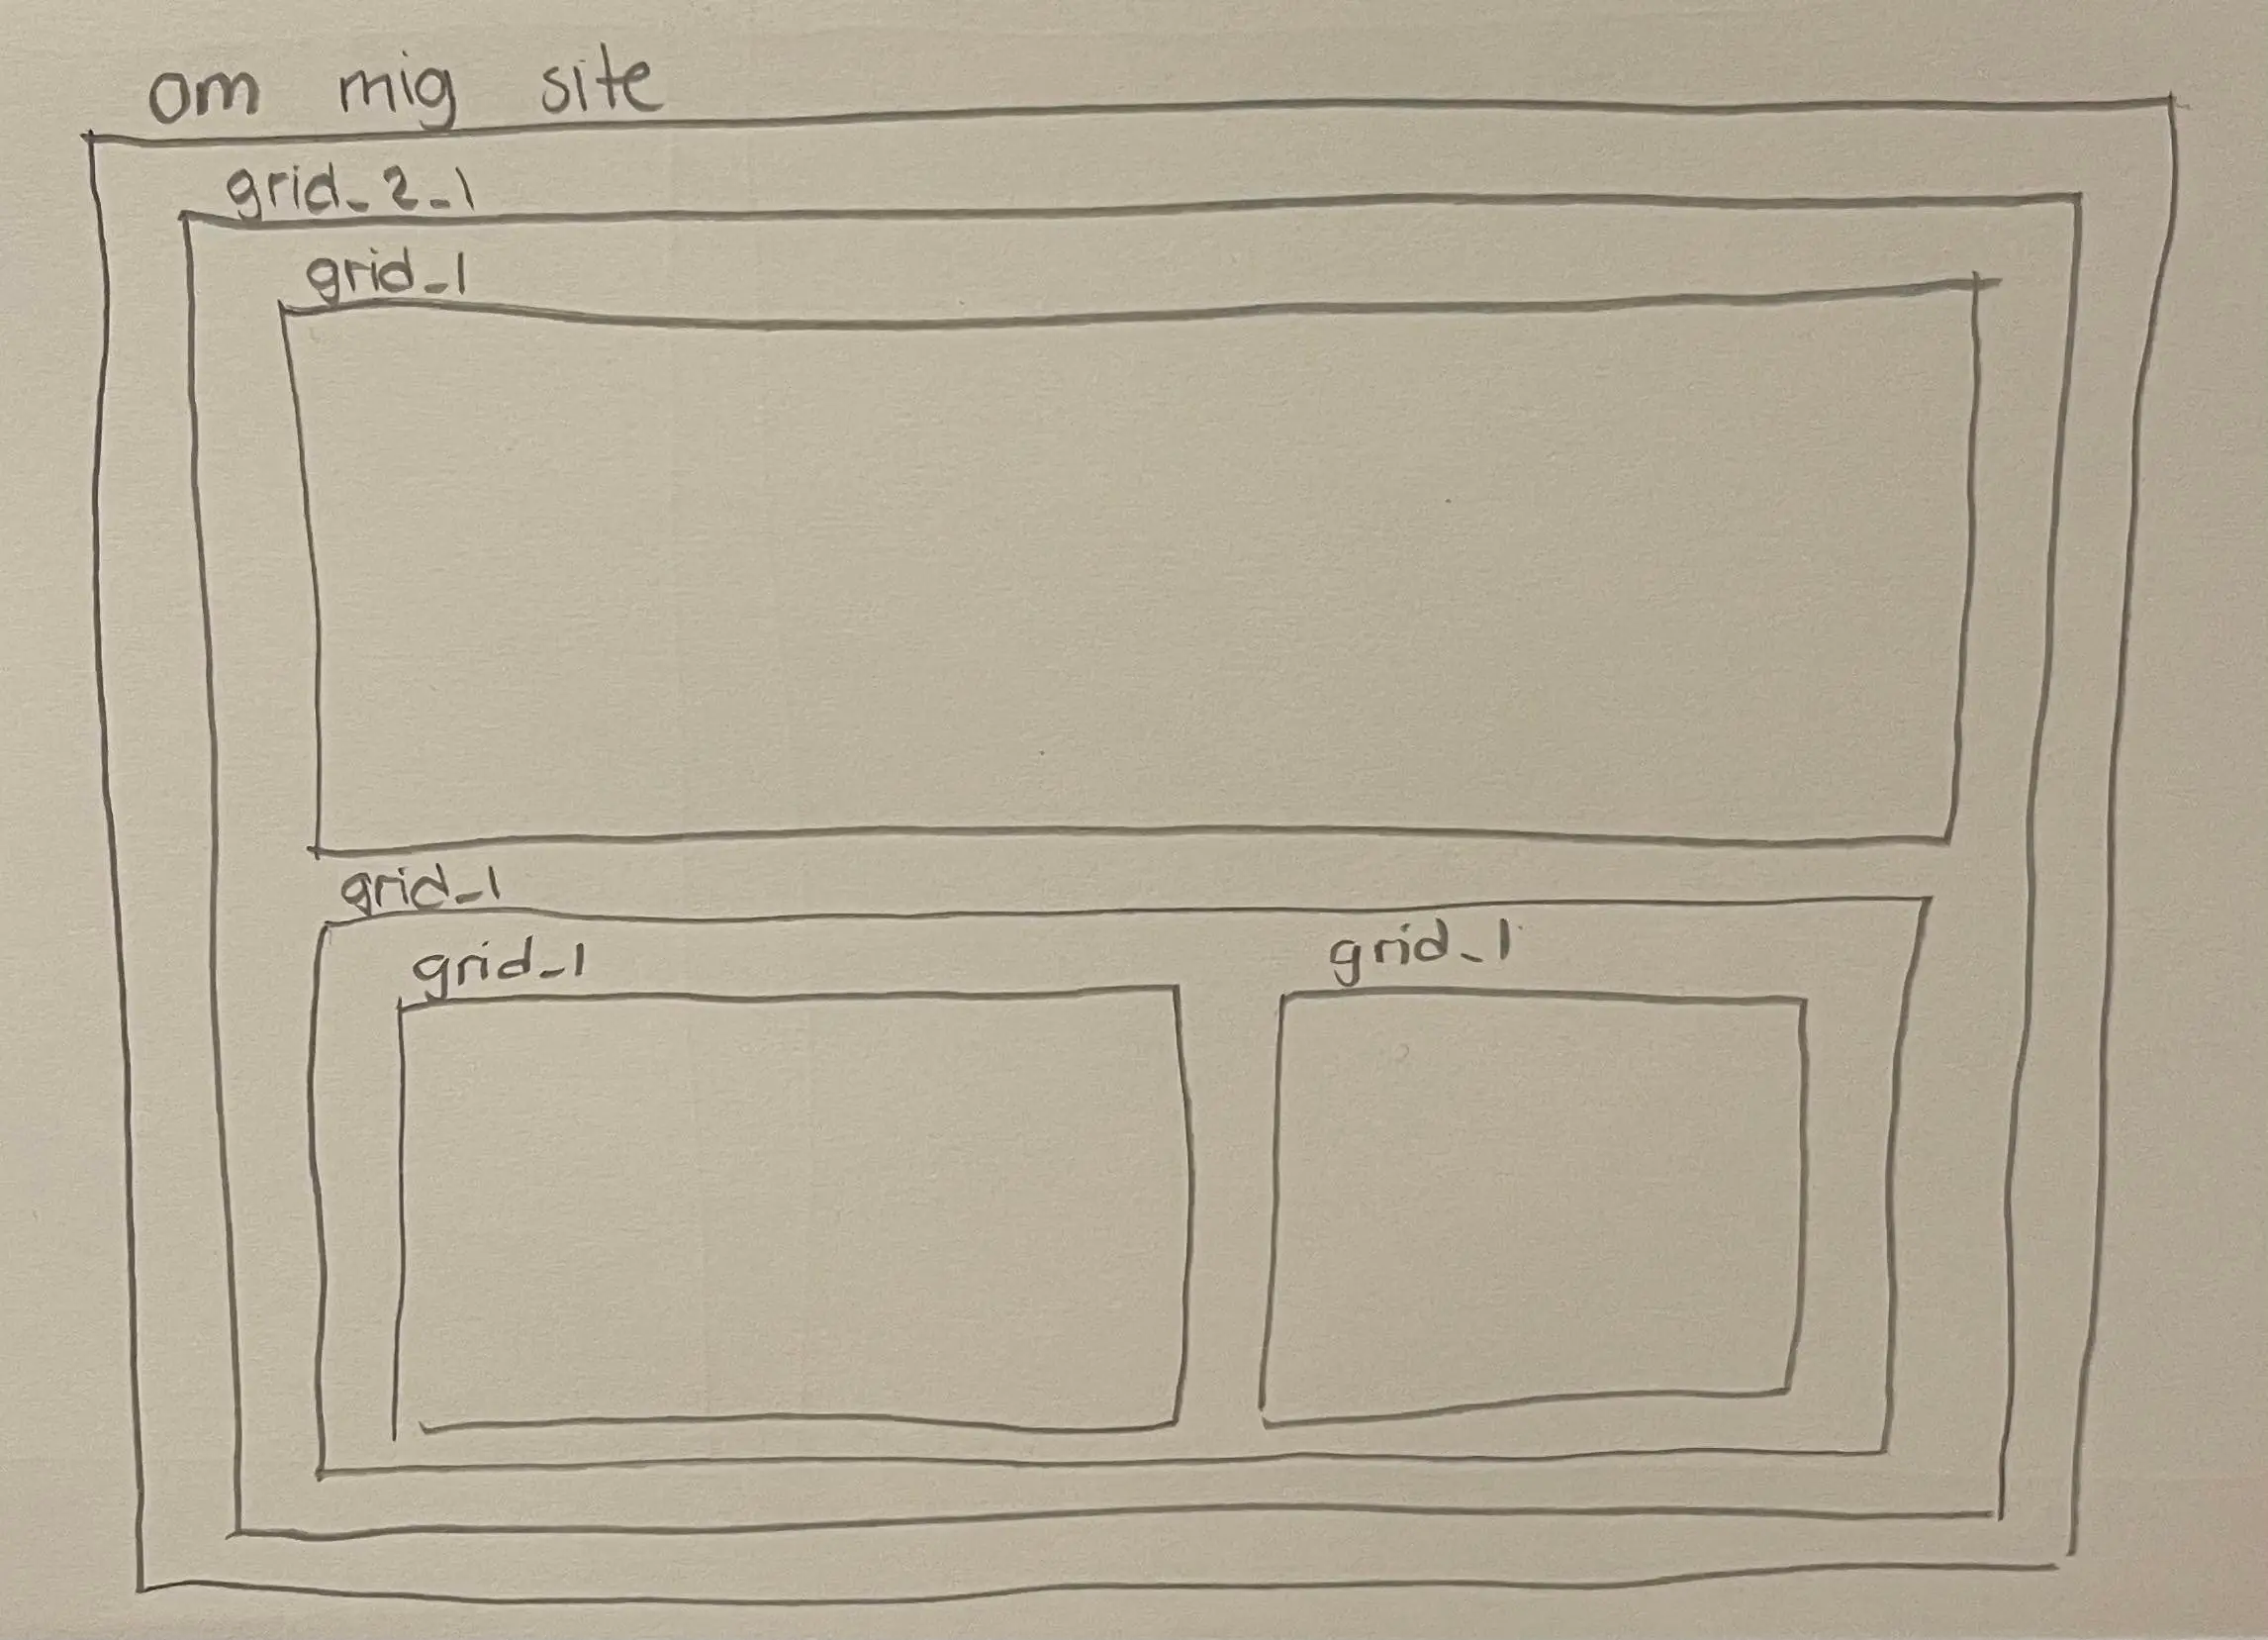 om mig site
grid_2_1
grid_1
grid_1
grid_1 grid_1